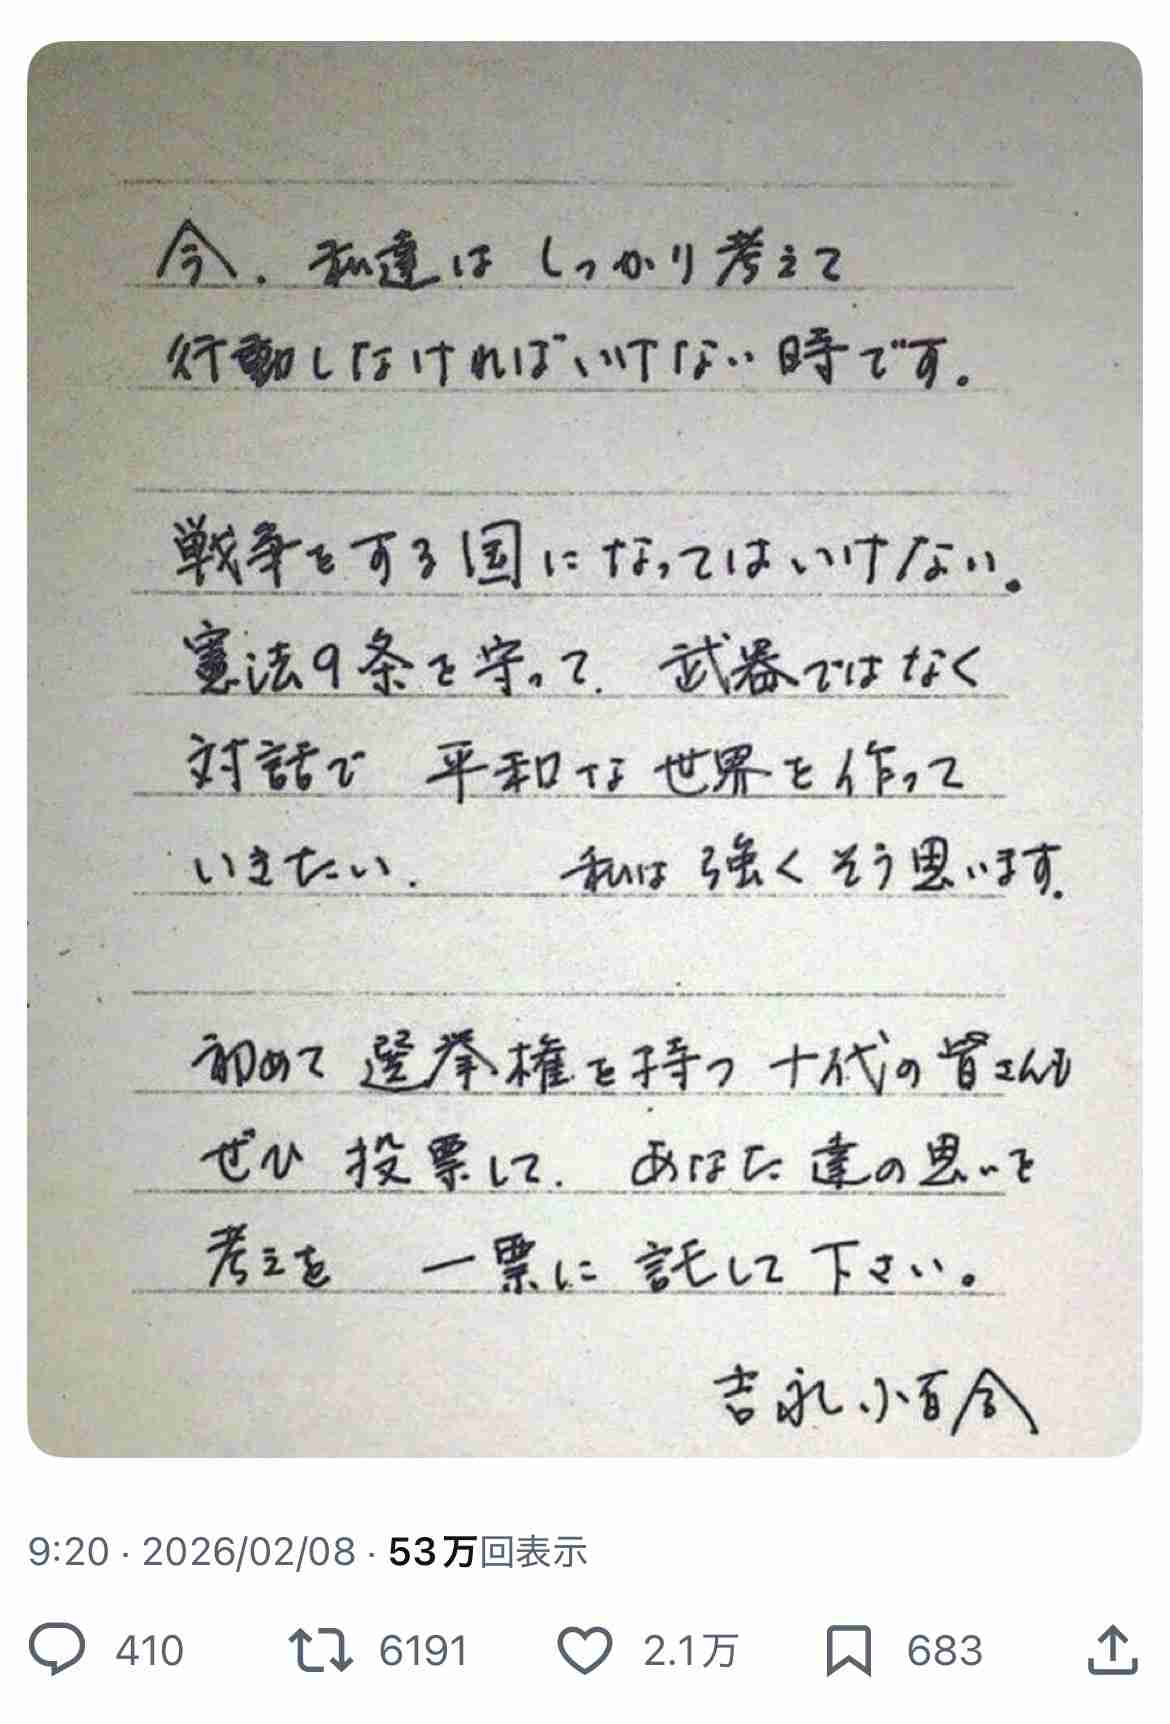 今、私達は しっかり考えて
行動しなければいけない時です。
戦争をする国になってはいけない。
憲法9条を守って、武器ではなく
対話で 平和な世界を作って
いきたい、 私は強くそう思います。
初めて選挙権を持つ十代の皆さんも
ぜひ投票して、あなた達の思いを
考えを 一票に託して下さい。
吉永小百合
9:20 · 2026/02/08 · 53万回表示
410 6191 2.1万 683